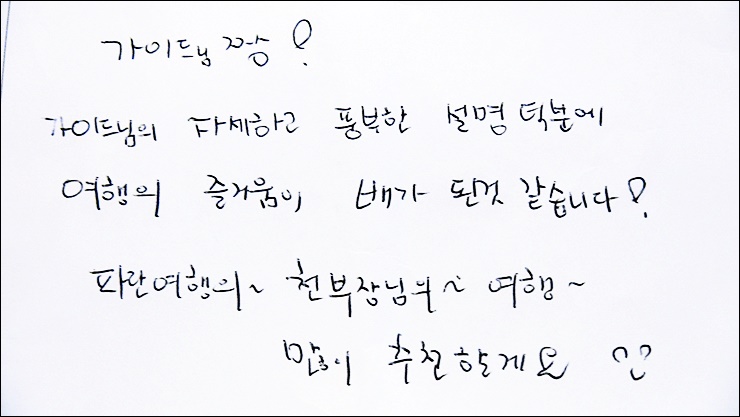 가이드님 짱!
가이드님의 자세하고 풍부한 설명 덕분에
여행의 즐거움이 배가 된것 같습니다!
파란여행의~ 천부장님의~ 여행~
많이 추천할게요 ^^